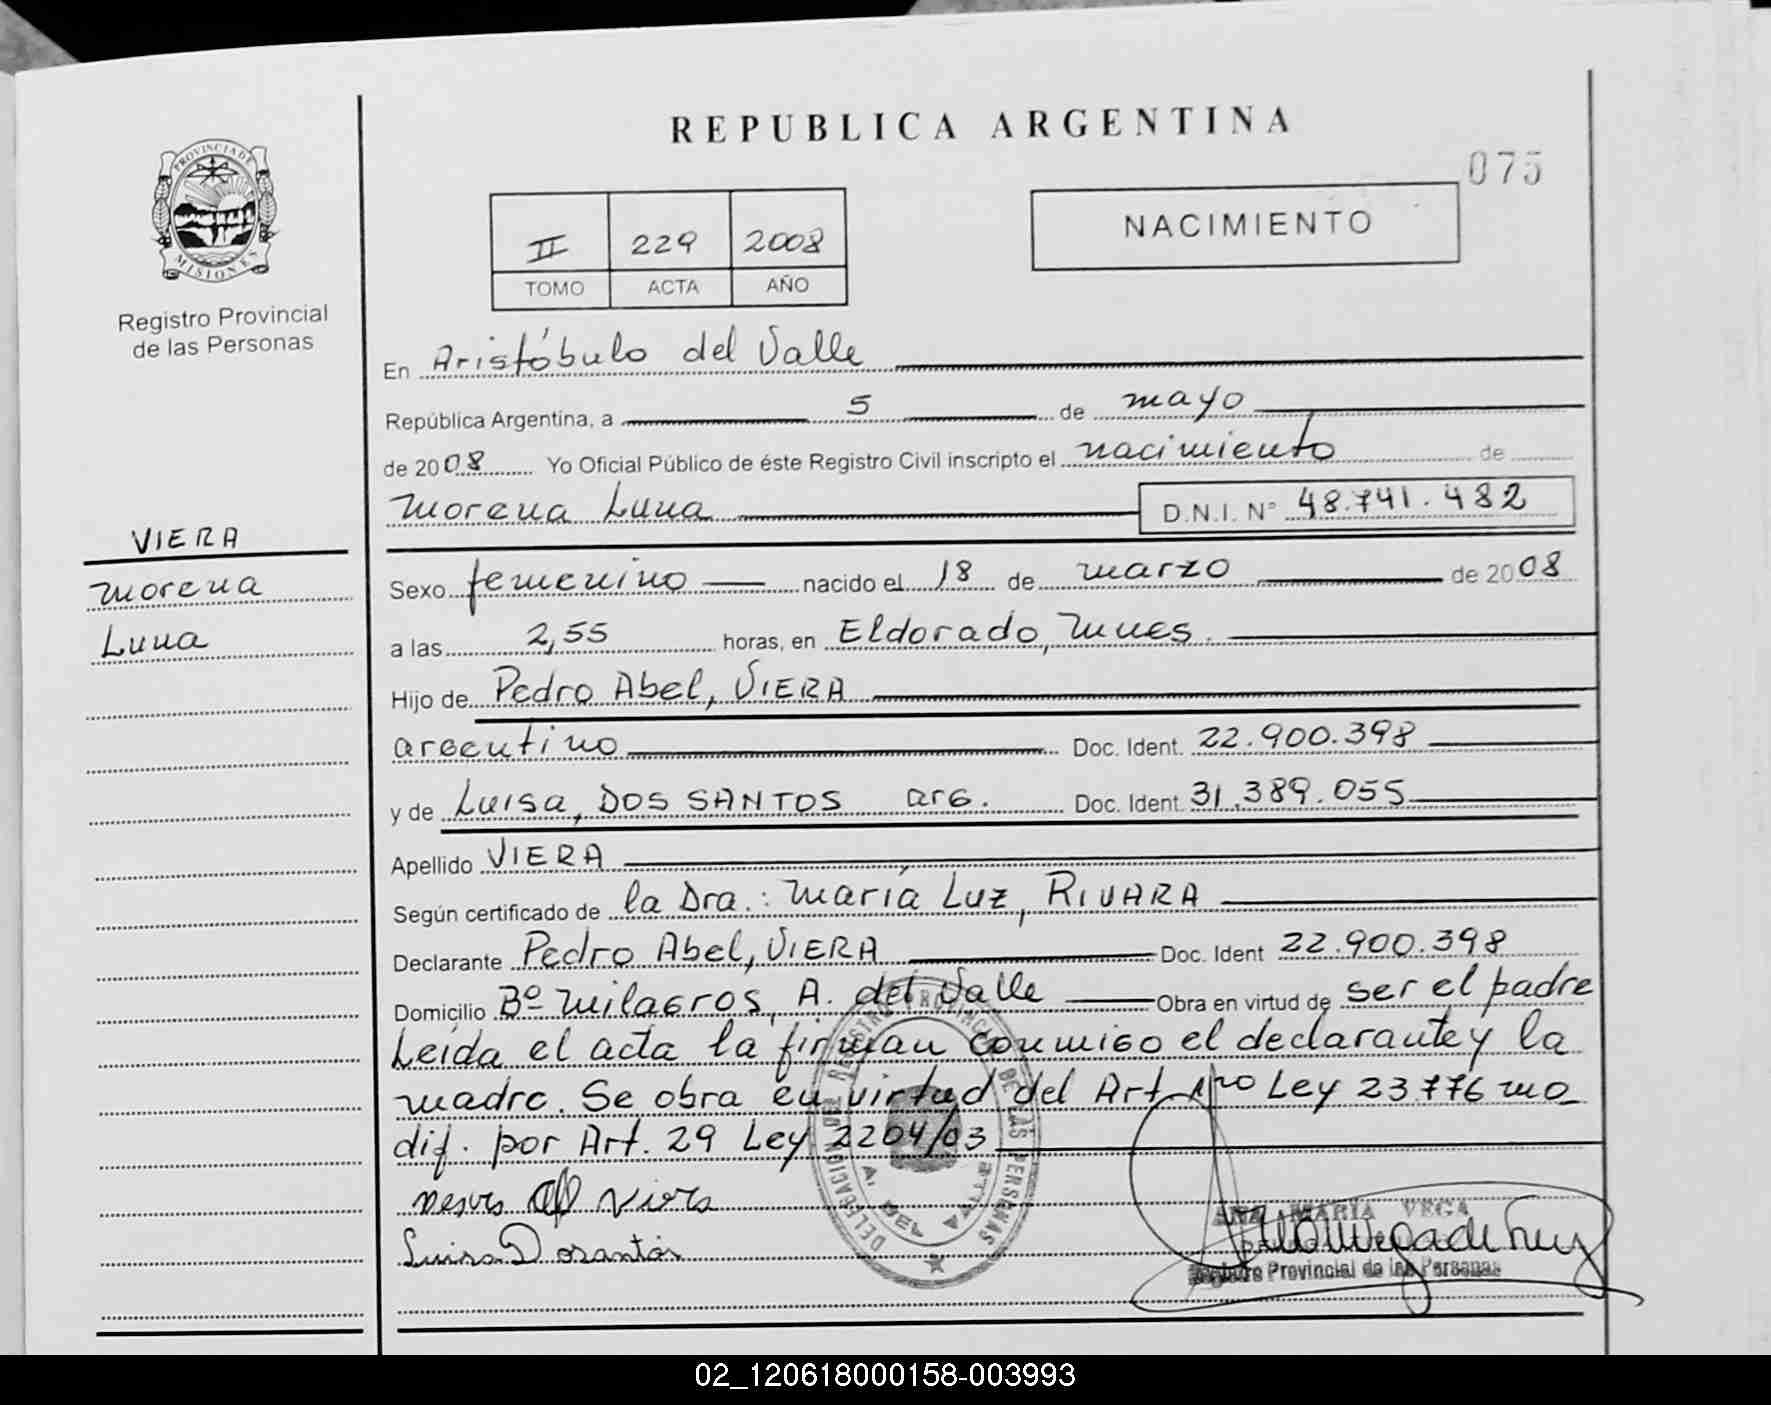 REPUBLICA ARGENTINA
075
PROVINCIA DE
MISIONES
Registro Provincial
de las Personas
II 229 2008
TOMO ACTA AÑO
NACIMIENTO
En Aristóbulo del Valle
República Argentina, a 5 de mayo
de 2008 Yo Oficial Público de éste Registro Civil inscripto el nacimiento de
Morena Luna D.N.I. Nº 48.741.482
VIERA
Morena
Luna
Sexo femenino nacido el 18 de marzo de 2008
a las 2,55 horas, en Eldorado, Mnes.
Hijo de Pedro Abel, VIERA
argentino Doc. Ident. 22.900.398
y de Luisa, DOS SANTOS arg. Doc. Ident. 31.389.055
Apellido VIERA
Según certificado de la Dra.: María Luz, RIVARA
Declarante Pedro Abel, VIERA Doc. Ident 22.900.398
Domicilio Bº Milagros, A. del Valle Obra en virtud de ser el padre
Leída el acta la firman conmigo el declarante y la
madre. Se obra en virtud del Art 1ro Ley 23.776 mo
dif. por Art. 29 Ley 2204/03
DELEGACION DEL REGISTRO PROVINCIAL DE LAS PERSONAS
A. DEL VALLE
Viera
Luisa Dosantos
ANA MARIA VEGA
Registro Provincial de las Personas
02_120618000158-003993